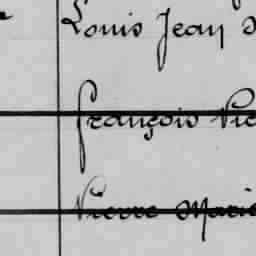 Louis Jean
François Vic
Pierre Marie